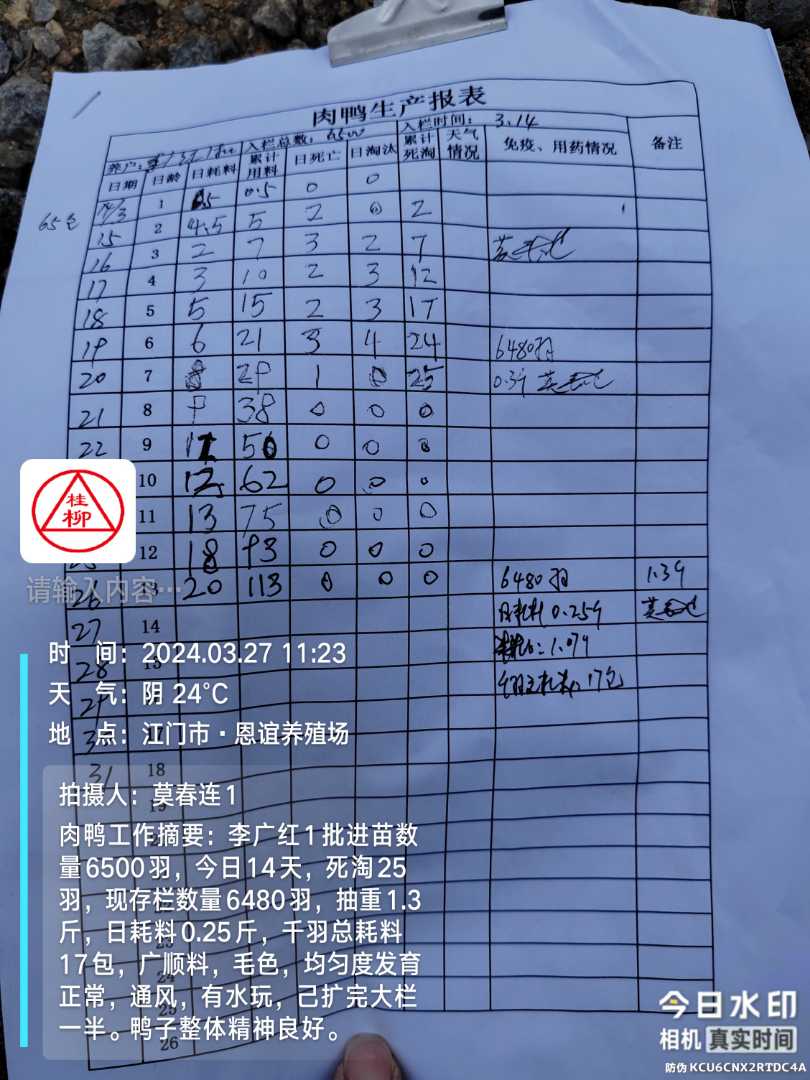 肉鸭生产报表
养户: 入栏总数: 6500 入栏时间: 3.14
日期 日龄 日耗料 累计用料 日死亡 日淘汰 累计死淘 天气情况 免疫、用药情况 备注
1 0.5 0 0
65包
15 2 4.5 5 2 0 2
16 3 2 7 3 2 7
17 4 3 10 2 3 12
18 5 5 15 2 3 17
19 6 6 21 3 4 24 6480羽
20 7 8 29 1 0 25
21 8 9 38 0 0 0
22 9 12 50 0 0 0
10 12 62 0 0 0
11 13 75 0 0 0
12 18 93 0 0 0
26 13 20 113 0 0 0 6480羽 1.39
27 14 日耗料 0.259
28 1.079
17包
31 18
26
桂柳
请输入内容…
时 间：2024.03.27 11:23
天 气：阴 24℃
地 点：江门市·恩谊养殖场
拍摄人：莫春连1
肉鸭工作摘要：李广红1批进苗数
量6500羽，今日14天，死淘25
羽，现存栏数量6480羽，抽重1.3
斤，日耗料0.25斤，千羽总耗料
17包，广顺料，毛色，均匀度发育
正常，通风，有水玩，己扩完大栏
一半。鸭子整体精神良好。
今日水印
相机 真实时间
防伪 KCU6CNX2RTDC4A